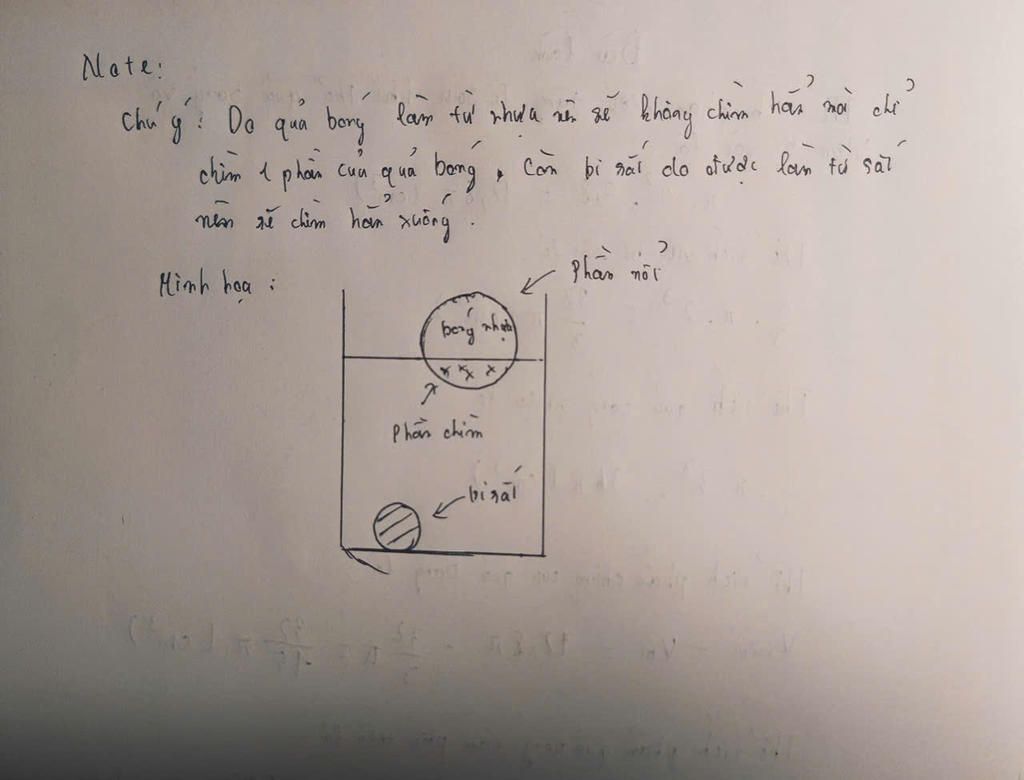 Note:
Chú ý: Do quả bóng làm từ nhựa nên sẽ không chìm hẳn mà chỉ
chìm 1 phần của quả bóng, còn bi sắt do được làm từ sắt
nên sẽ chìm hẳn xuống.
Minh hoạ:
Phần nổi
bóng nhựa
Phần chìm
bi sắt